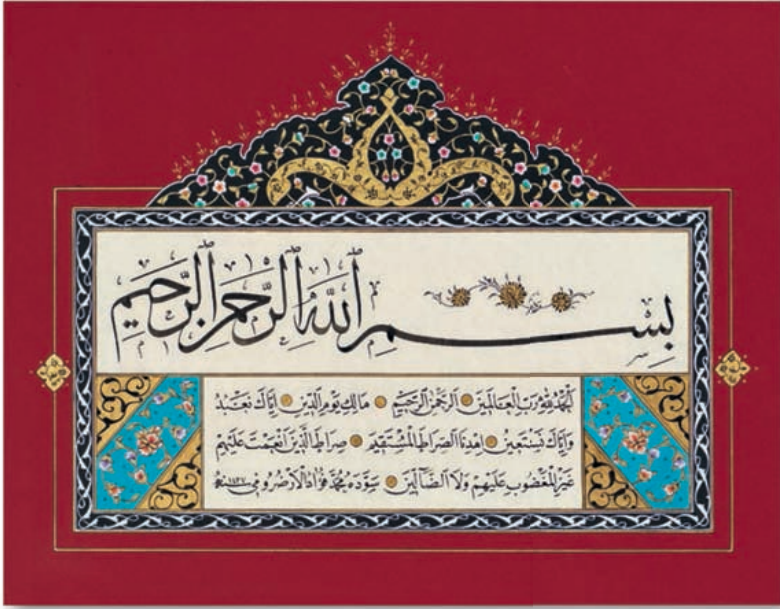 بِسْمِ اللَّهِ الرَّحْمٰنِ الرَّحِيمِ
اَلْحَمْدُ لِلّٰهِ رَبِّ الْعَالَمِينَ اَلرَّحْمٰنِ الرَّحِيمِ مَالِكِ يَوْمِ الدِّينِ اِيَّاكَ نَعْبُدُ
وَاِيَّاكَ نَسْتَعِينُ اِهْدِنَا الصِّرَاطَ الْمُسْتَقِيمَ صِرَاطَ الَّذِينَ اَنْعَمْتَ عَلَيْهِمْ
غَيْرِ الْمَغْضُوبِ عَلَيْهِمْ وَلَا الضَّالِّينَ سَوَّدَهُ مُحَمَّد